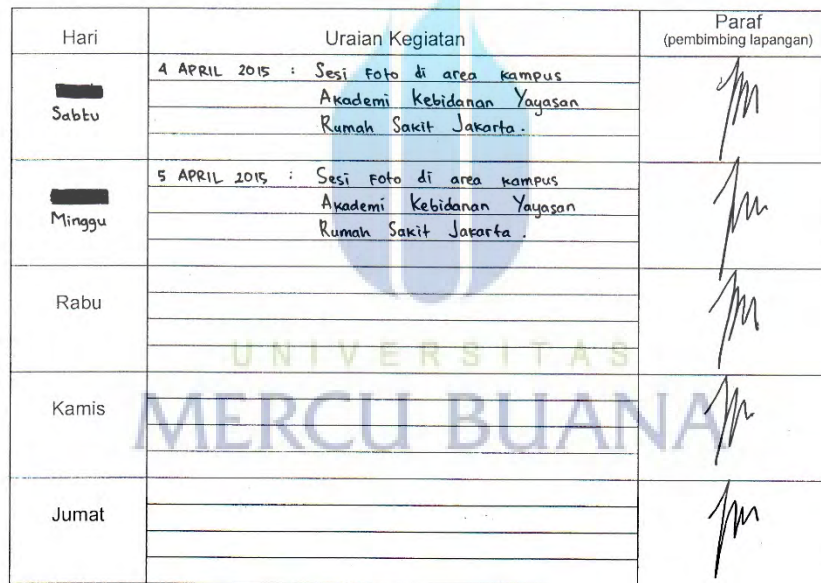 Hari Uraian Kegiatan Paraf
(pembimbing lapangan)
4 APRIL 2015 : Sesi Foto di area kampus
Sabtu Akademi Kebidanan Yayasan
Rumah Sakit Jakarta.
5 APRIL 2015 : Sesi Foto di area kampus
Minggu Akademi Kebidanan Yayasan
Rumah Sakit Jakarta.
Rabu
UNIVERSITAS
Kamis
MERCU BUANA
Jumat